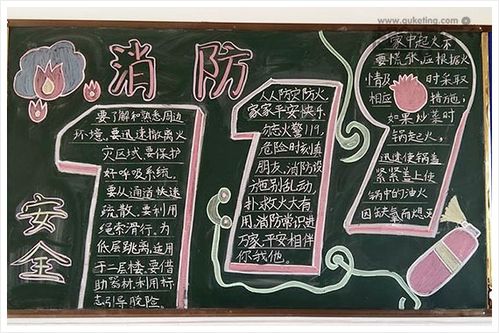 www.quketing.com
消防
安全
119
要了解和熟悉周边
环境。要迅速撤离火
灾区域，要保护
好呼吸系统。
要从通道快速
疏散。要利用
绳索滑行。为
低层跳离，适用
于二层楼。要借
助药材，利用标
志引导脱险。
人人防灾防火，
家家平安快乐。
勿忘火警119，
危险时刻慎
朋友。消防设
施别乱动，
扑救火大有
用。消防常识进
万家，平安相伴
你我他。
家中起火不
要慌张，应根据火
情及时采取
相应措施，
如果炒菜时
锅起火，
迅速使锅盖
紧紧盖上使
锅中的油火
因缺氧而熄灭